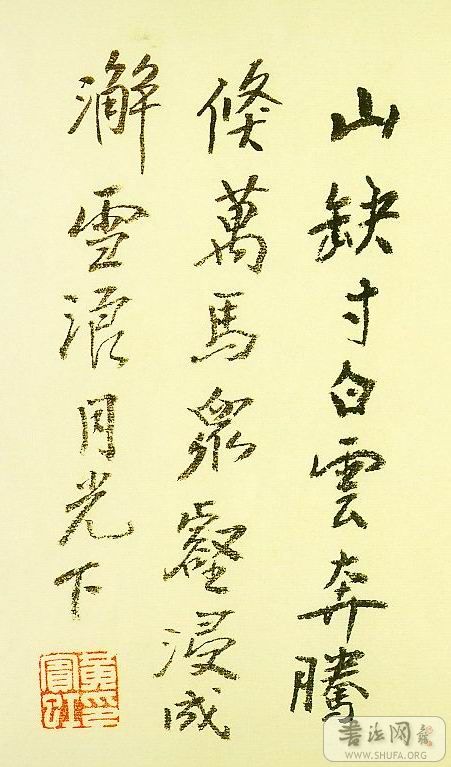 山缺寸白雲奔騰
倏萬馬衆壑浸成
澥雪浪月光下
書法网
WWW.SHUFA.ORG